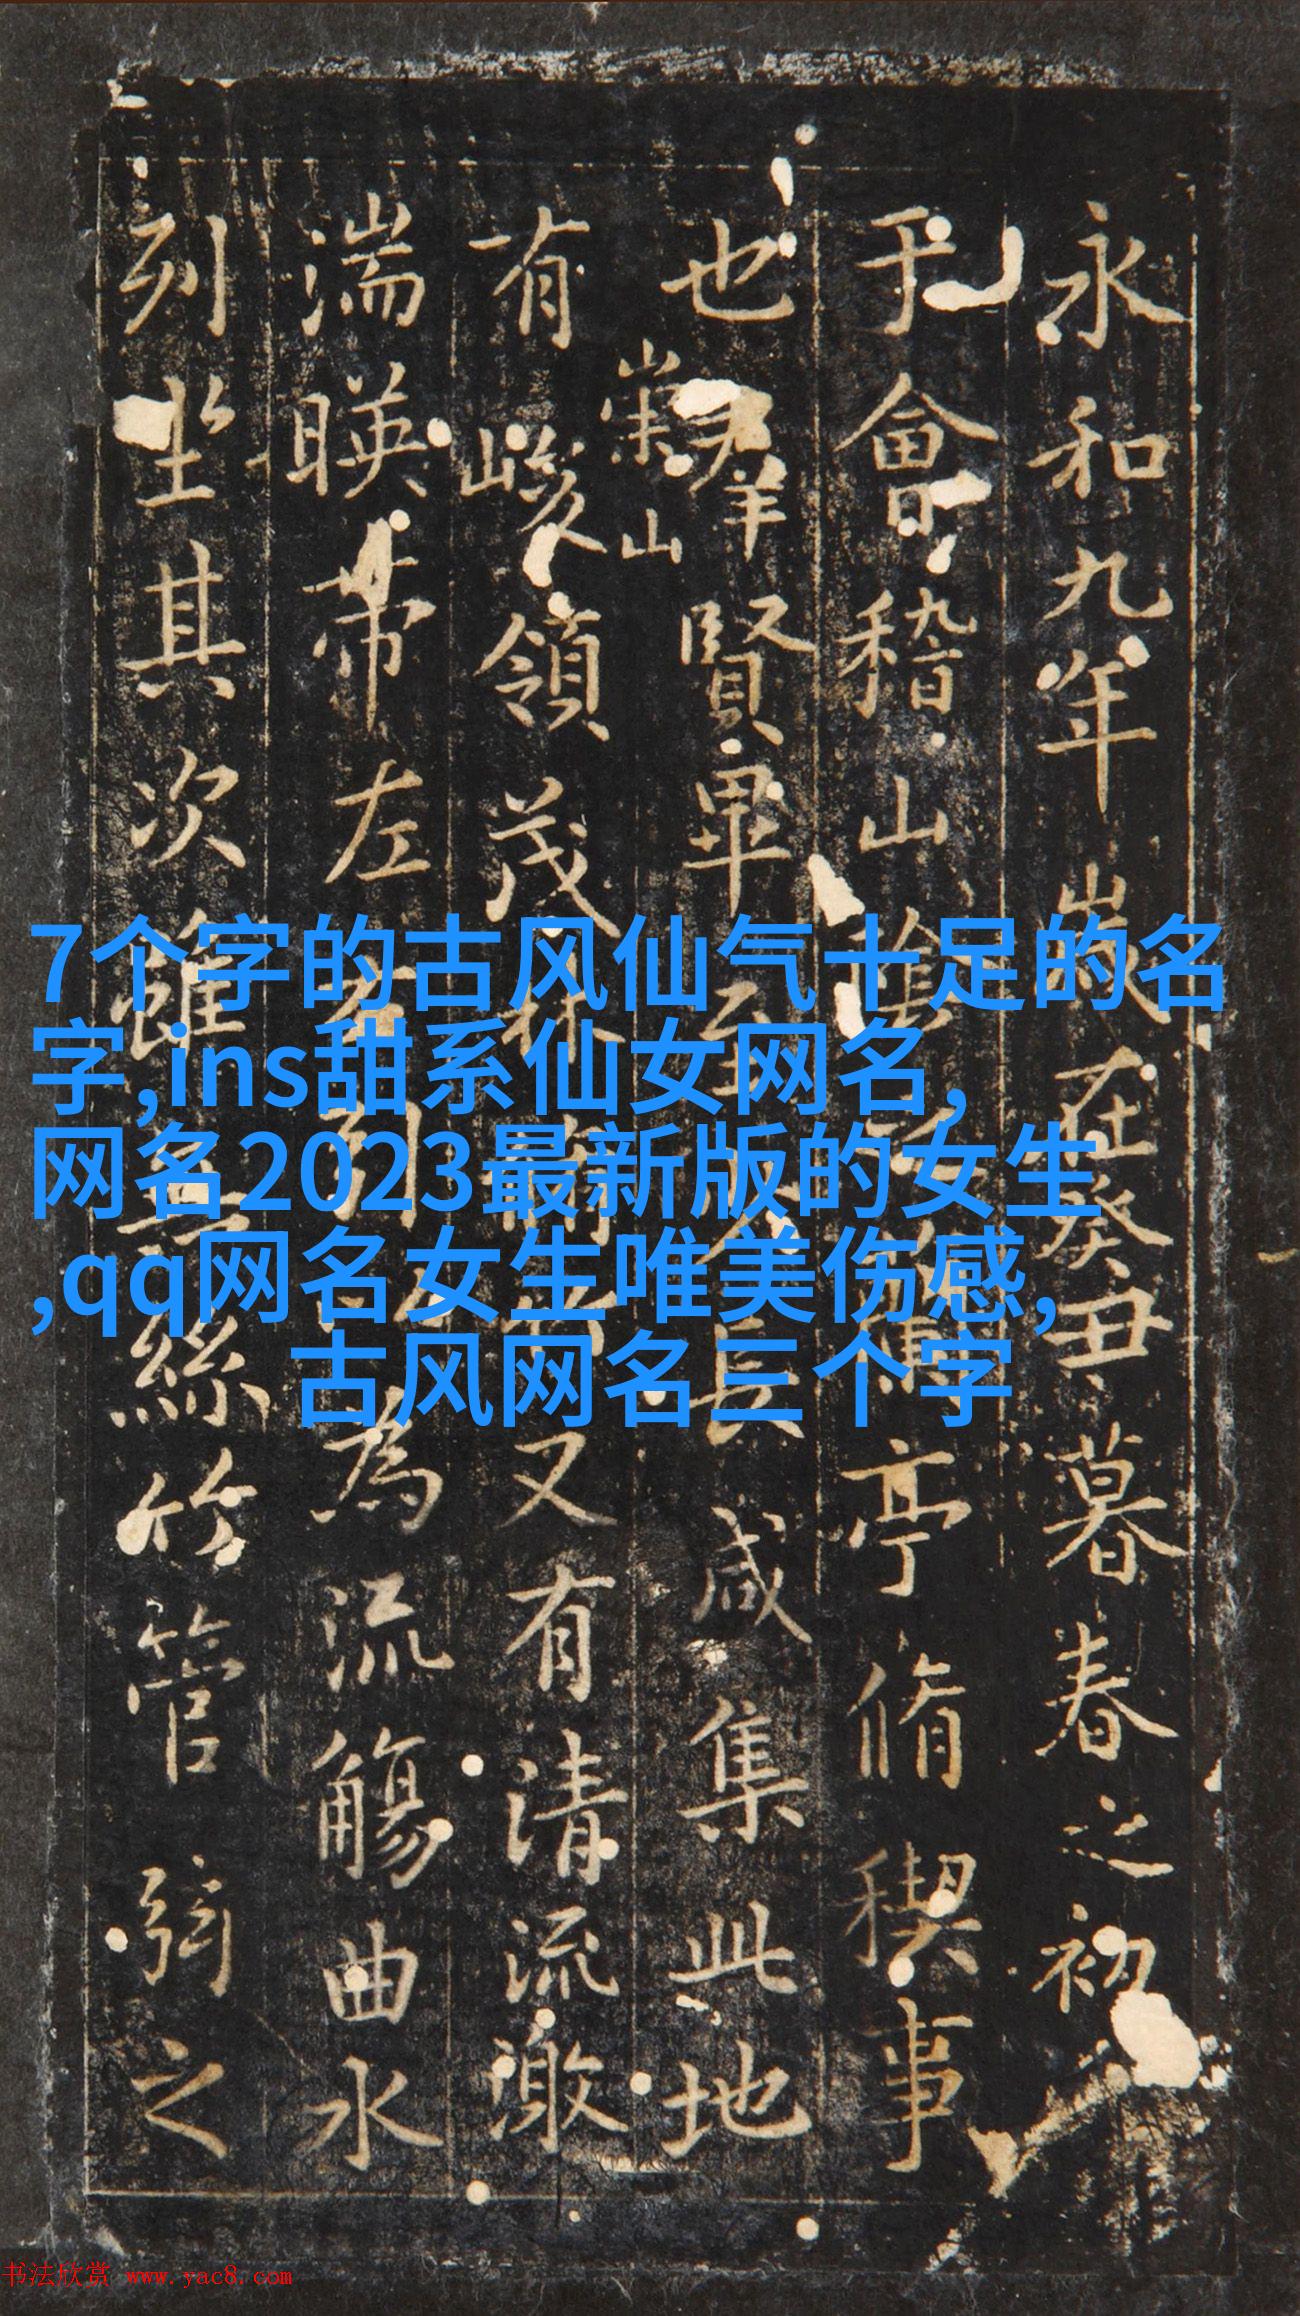 永和九年歲在癸丑暮春之初
于會稽山陰之蘭亭脩稧事
也羣賢畢至少長咸集此地
崇山
有峻領茂林脩竹又有清流激
湍暎帶左右引以為流觴曲水
列坐其次雖無絲竹管弦之
7个字的古风仙气十足的名
字,ins甜系仙女网名,
网名2023最新版的女生
,qq网名女生唯美伤感,
古风网名三个字
书法欣赏 www.yac8.com